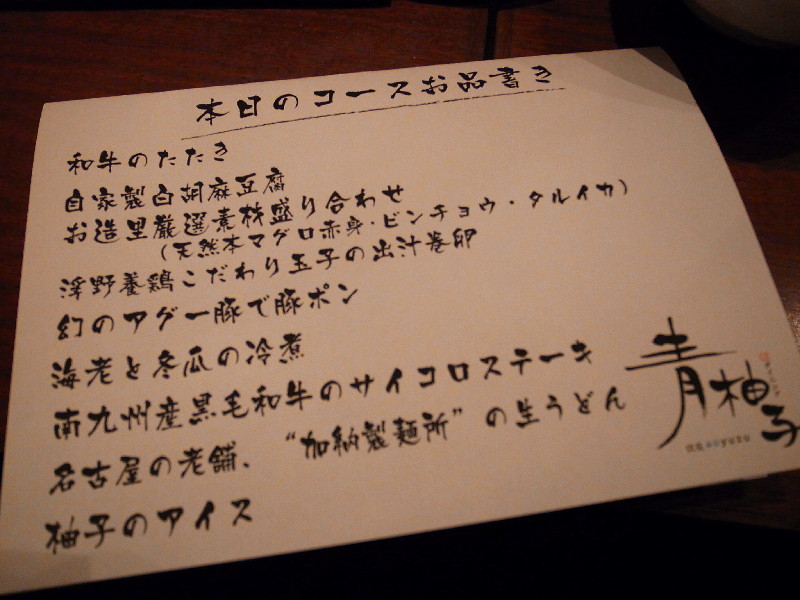 本日のコースお品書き
和牛のたたき
自家製白胡麻豆腐
お造里厳選素材盛り合わせ
（天然本マグロ赤身・ビンチョウ・タルイカ）
浮野養鶏こだわり玉子の出汁巻卵
幻のアグー豚で豚ポン
海老と冬瓜の冷煮
南九州産黒毛和牛のサイコロステーキ
名古屋の老舗、“加納製麺所”の生うどん
柚子のアイス
青柚子
yuzu